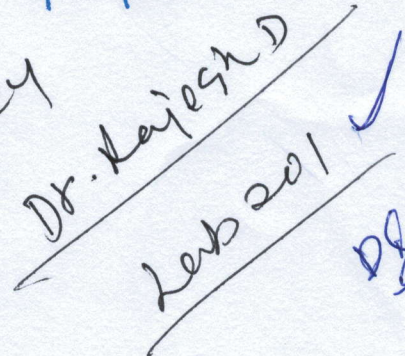 Dr. Rajesh D
Lab 201